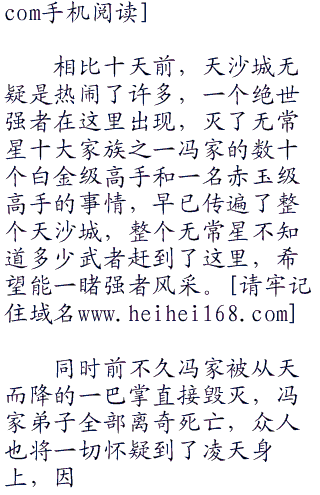 com手机阅读]
相比十天前，天沙城无
疑是热闹了许多，一个绝世
强者在这里出现，灭了无常
星十大家族之一冯家的数十
个白金级高手和一名赤玉级
高手的事情，早已传遍了整
个天沙城，整个无常星不知
道多少武者赶到了这里，希
望能一睹强者风采。[请牢记
住域名www.heihei168.com]
同时前不久冯家被从天
而降的一巴掌直接毁灭，冯
家弟子全部离奇死亡，众人
也将一切怀疑到了凌天身
上，因